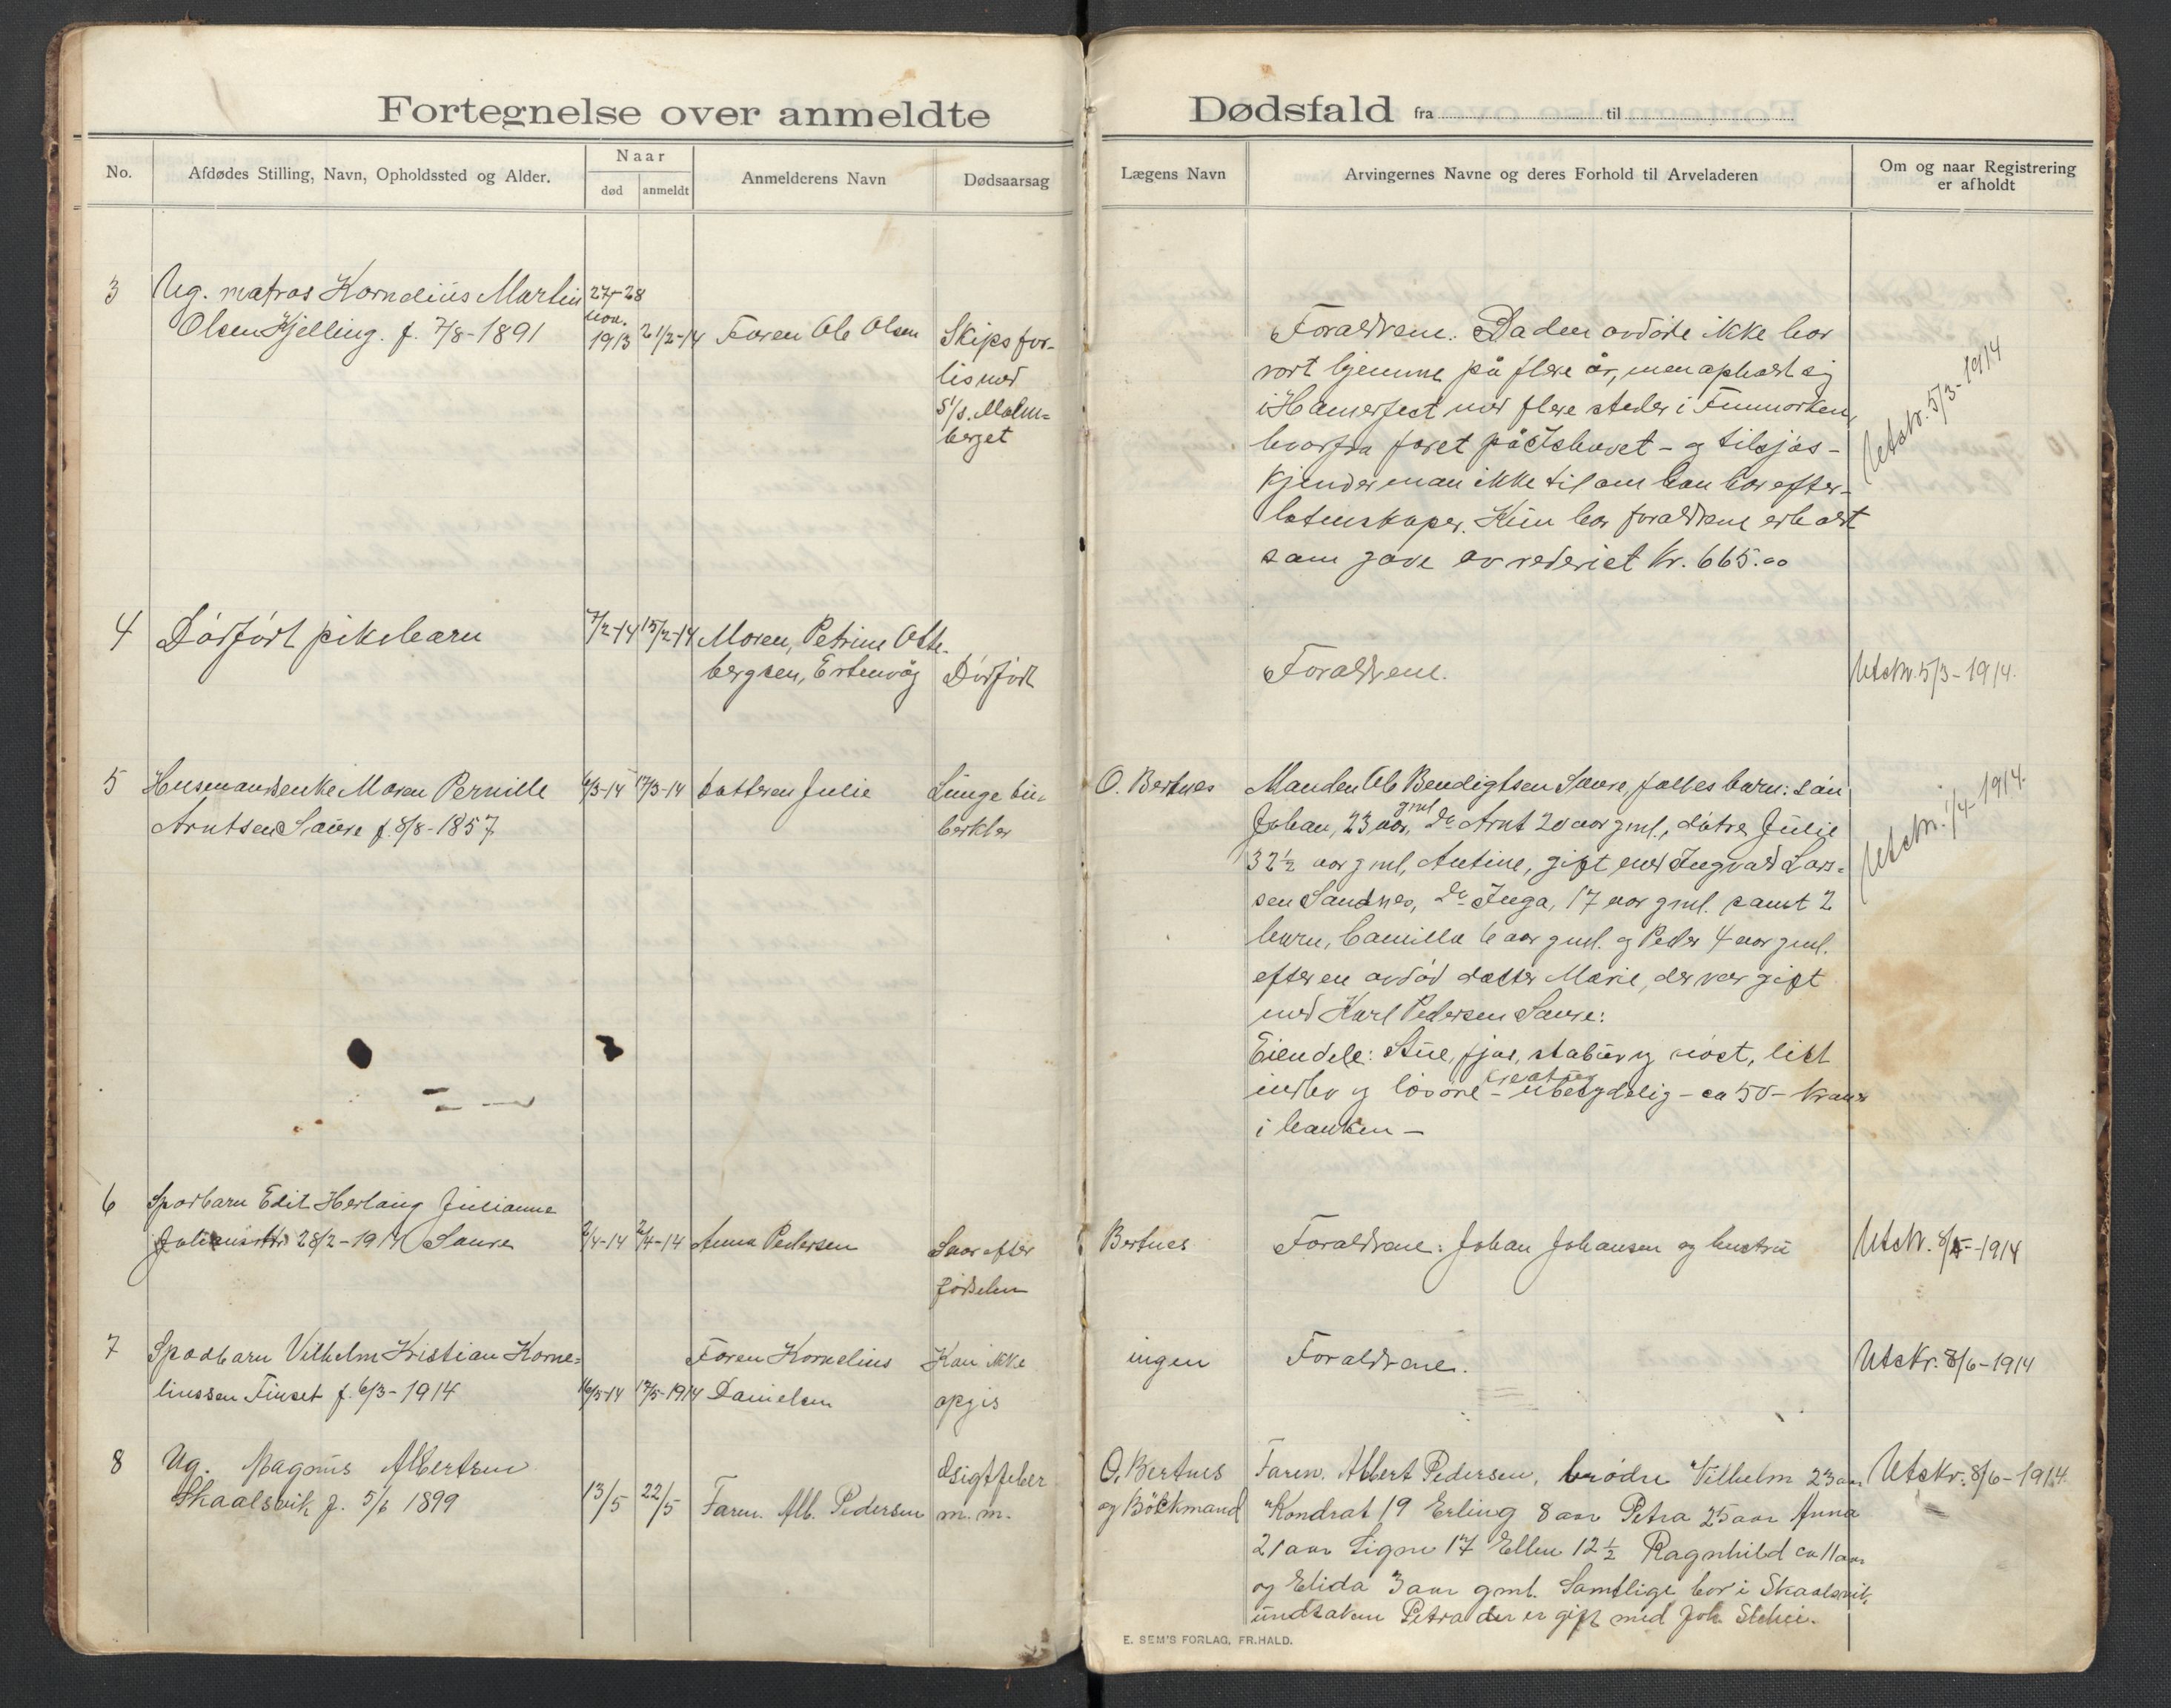 Fortegnelse over anmeldte
Dødsfald fra til
No.
Afdødes Stilling, Navn, Opholdssted og Alder.
Naar
død
anmeldt
Anmelderens Navn
Dødsaarsag
Lægens Navn
Arvingernes Navne og deres Forhold til Arveladeren
Om og naar Registrering
er afholdt
3
Ug. matros Kornelius Martin
Olsen Kjelling. f. 7/8-1891
27-28
nov.
1913
21/2-14
Faren Ole Olsen
Skipsfor-
lis med
S/s. Malm-
berget
Forældrene. Da den avdøde ikke har
vært hjemme på flere år, men opholdt sig
i Hamerfest med flere steder i Finmarken,
hvorfra faret på Ishavet - og tilsjøs -
kjender man ikke til om han har efter-
latenskaper. Kun har forældrene erholdt
som gave av rederiet kr. 665.00
Utskr. 5/3-1914
4
Dødfødt pikebarn
7/2-14
15/2-14
Moren, Petrine Otte-
bergsen, Ertenvåg
Dødfødt
Forældrene.
Utskr. 5/3-1914.
5
Husmandsenke Maren Pernille
Arntsen Saure f. 8/8-1857
6/3-14
17/3-14
Datteren Julie
Lungetu-
berkler
O. Bertnes
Manden Ole Bendigtsen Saure, fælles barn: søn
Johan, 23 aar gml, do Arnt 20 aar gml., døtre Julie
32½ aar gml, Antine, gift med Ingvald Lars-
sen Sandnes, do Inga, 17 aar gml. samt 2
barn, Camilla 6 aar gml. og Peder 4 aar gml.
efter en avdød datter Marie, der var gift
med Karl Pedersen Saure:
Eiendele: Stue, fjøs, stabur og nøst, litt
indbo og løsøre - creatur ubetydelig - ca 50 - kroner
i banken -
Utskr. 1/4-1914.
6
Spædbarn Edit Herlaug Julianne
28/2-1914 Saure
2/4-14
2/4-14
Anna Pedersen
Saar efter
fødselen
Bertnes
Forældrene: Johan Johansen og hustru
Utskr. 8/5-1914
7
Spædbarn Vilhelm Kristian Korne-
liussen Finset f. 6/3-1914
16/5-14
17/5-1914
Faren Kornelius
Danielsen
Kan ikke
opgis
ingen
Forældrene.
Utskr. 8/6-1914
8
Ug. Magnus Albertsen
Skaalsvik f. 5/6 1899
13/5
22/5
Faren. Alb. Pedersen
Gigtfeber
m. m.
O. Bertnes
og Böckmand
Faren. Albert Pedersen, brødre Vilhelm 23 aar
Kondrat 19 Erling 8 aar Petra 25 aar Anna
21 aar Signe 17 Ellen 12½ Ragnhild ca 11 aar
og Elida 3 aar gml. Samtlige bor i Skaalsvik,
undtaken Petra der er gift med Joh.
Utskr. 8/6-1914.
E. SEM'S FORLAG, FR.HALD.